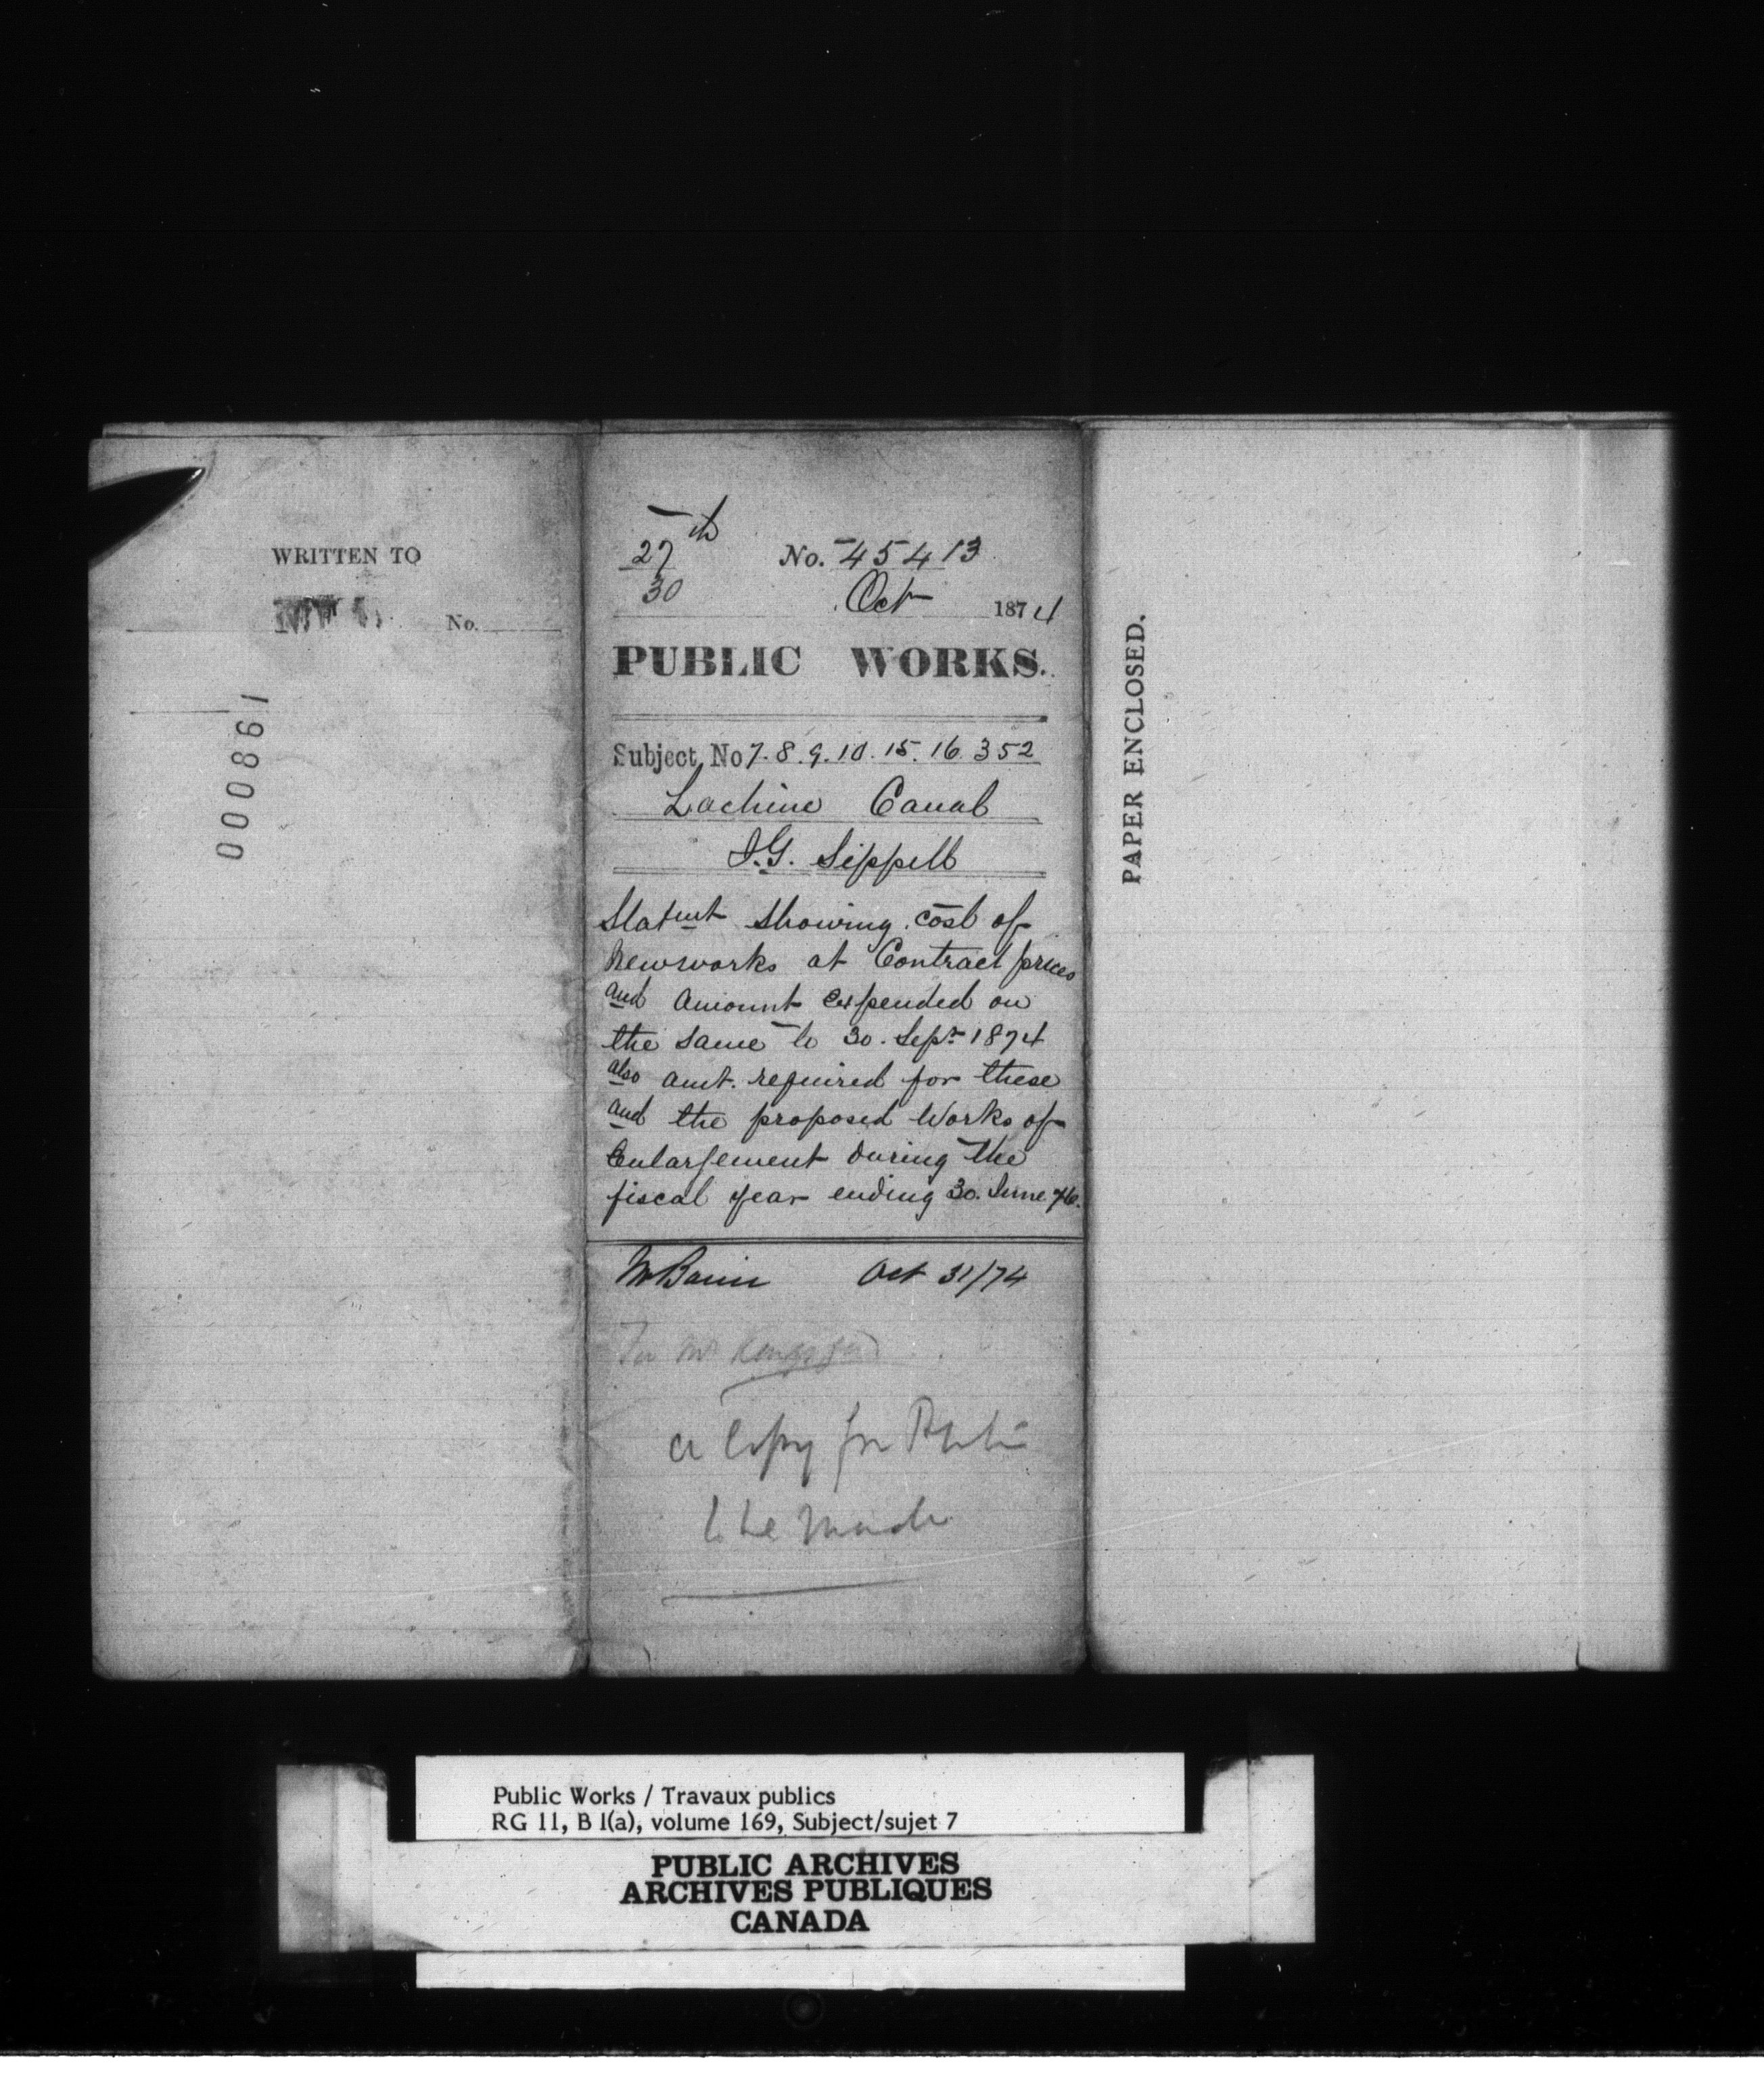 WRITTEN TO
No.
000861
27th No. 45413
30 Oct 1874
PUBLIC WORKS.
Subject No 7. 8. 9. 10. 15. 16. 352
Lachine Canal
J.G. Sippell
Statmt showing cost of
Newworks at Contract prices
and Amount expended on
the same to 30. Sept 1874
also amt. required for these
and the proposed Works of
Enlargement during the
fiscal year ending 30. June 76.
Oct 31/74
a Copy for
to be made
PAPER ENCLOSED.
Public Works / Travaux publics
RG 11, B 1(a), volume 169, Subject/sujet 7
PUBLIC ARCHIVES
ARCHIVES PUBLIQUES
CANADA